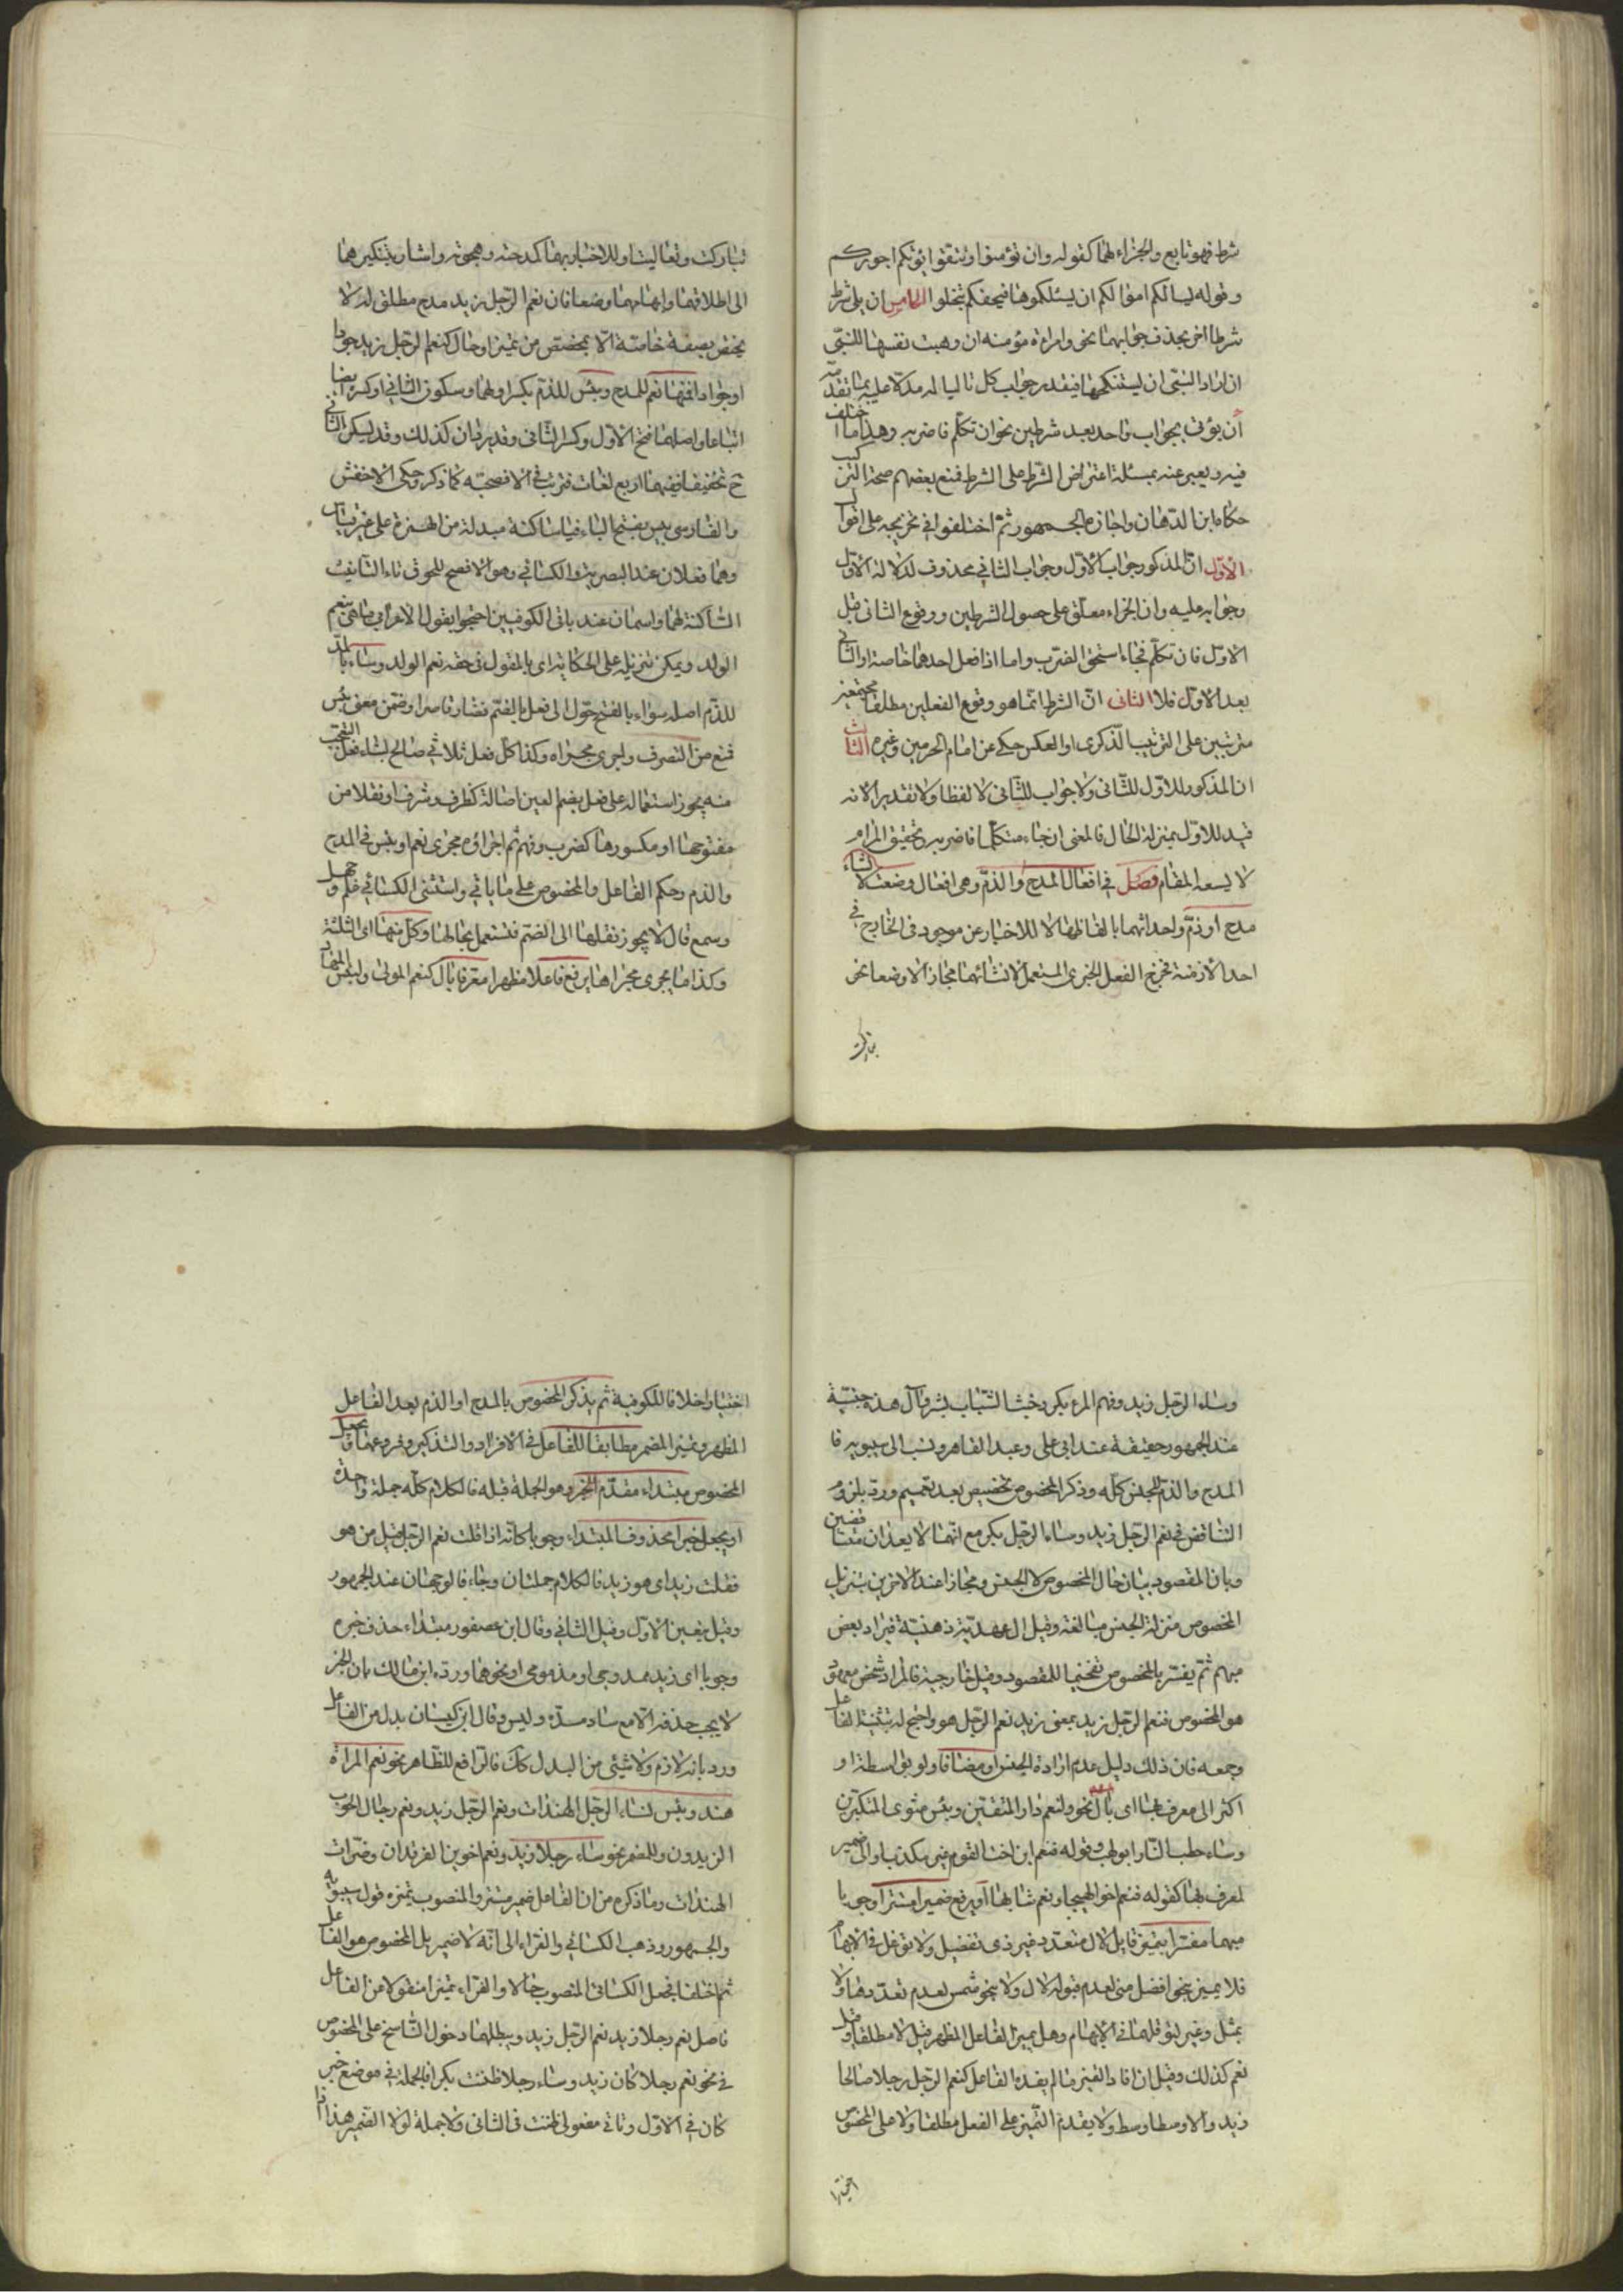 شرط فهو تابع والجزاء لهما كقوله وان تؤمنوا وتتقوا يؤتكم اجوركم
وقوله ليسالكم اموالكم ان يسئلكموها فيحفكم تبخلوا الخامس ان يلي شرط
شرطا اخر يحذف جوابهما نحو وامراة مؤمنه ان وهبت نفسها للنبي
ان اراد النبي ان يستنكحها فيقدر جواب كل تاليا له مدلا عليه بما تقدمه
ان يؤتى بجواب واحد بعد شرطين نحو ان تكلم فاضربه وهذا مما اختلف
فيه ويعبر عنه بمسئلة اعتراض الشرط على الشرط فمنع بعضهم صحة التركيب
حكاه ابن الدهان واجازه الجمهور ثم اختلفوا في تخريجه على اقوال
الاول ان المذكور جواب الاول وجواب الثاني محذوف لدلالة الاول
وجوابه عليه وان الجزاء معلق على حصول الشرطين ووقوع الثاني قبل
الاول فان تكلم فجاء استحق الضرب واما اذا فعل احدهما خاصة او الثاني
بعد الاول فلا الثاني ان الشرط انما هو وقوع الفعلين مطلقا مجتمعين
مترتبين على الترتيب الذكري او العكس حكي عن امام الحرمين وغيره الثالث
ان المذكور للاول للثاني ولا جواب للثاني لا لفظا ولا تقديرا لانه
قيد للاول بمنزلة الحال فالمعنى ان جاء متكلما فاضربه وتحقيق المرام
لا يسعه المقام فصل في افعال المدح والذم وهي افعال وضعت لانشاء
مدح او ذم واحداثهما بالفاظها لا للاخبار عن موجود في الخارج في
احد الازمنة فخرج الفعل الخبري المستعمل لانشائهما مجازا لا وضعا نحو
تباركت
تباركت وتعاليت او للاخبار بهما كمدحته وهجوته واشار بتنكيرهما
الى اطلاقهما وابهامهما وضعا فان نعم الرجل زيد مدح مطلق له لا
يختص بصفة خاصة الا بمخصص من تميز او حال كنعم الرجل زيد جوادا
او جوادا فمنها نعم للمدح وبئس للذم بكسر اولهما وسكون الثاني او كسره ايضا
اتباعا واصلهما فتح الاول وكسر الثاني وقد يردان كذلك وقد يسكن الثاني
ح تخفيفا ففيهما اربع لغات مرتبة في الافصحية كما ذكر وحكى الاخفش
والفارسي بيس بفتح الباء فياء ساكنة مبدلة من الهمزة على غير قياس
وهما فعلان عند البصرية والكسائي وهو الافصح للحوق تاء التانيث
الساكنة لهما واسمان عند باقي الكوفيين احتجوا بقول الاعرابي ما هي بنعم
الولد ويمكن تنزيله على الحكاية اي بالمقول في حقه نعم الولد وساء بالمد
للذم اصله سواء بالفتح حول الى فعل بالضم فصار قاصرا وضمن معنى بئس
فمنع من التصرف واجري مجراه وكذا كل فعل ثلاثي صالح لبناء فعل التعجب
منه يجوز استعماله على فعل بضم العين اصالة كظرف وشرف او نقلا من
مفتوحها او مكسورها كضرب وفهم ثم اجراؤه مجرى نعم او بئس في المدح
والذم وحكم الفاعل والمخصوص على ما ياتي واستثنى الكسائي علم وجهل
وسمع فقال لا يجوز نقلها الى الضم فتستعمل بحالها وكل منها اي الثلثة
وكذا ما يجري مجراها يرفع فاعلا مظهرا معرفا بال كنعم المولى ولبئس المهاد
وساء الرجل زيد وفهم المرء بكر وخبث الشباب بشر وال هذه جنسية
عند الجمهور حقيقة عند ابي علي وعبد القاهر ونسب الى سيبويه فا
المدح والذم للجنس كله وذكر المخصوص تخصيص بعد تعميم ورد بلزوم
التناقض في نعم الرجل زيد وساء الرجل بكر مع انهما لا يعدان متناقضين
وبان المقصود بيان حال المخصوص لا الجنس ومجازا عند الاخرين بتنزيل
المخصوص منزلة الجنس مبالغة وقيل ال عهدية ذهنية فيراد بعض
مبهم ثم يفسر بالمخصوص تفخيما للمقصود وقيل خارجية فالمراد شخص معهود
هو المخصوص فنعم الرجل زيد بمعنى زيد نعم الرجل هو واحتج له بتثنية الفاعل
وجمعه فان ذلك دليل عدم ارادة الجنس او مضافا ولو بواسطة او
اكثر الى معرف بها اي بال نحو ولنعم دار المتقين وبئس مثوى المتكبرين
وساء حطب النار ابو لهب وقوله فنعم ابن اخت القوم غير مكذب او الى ضمير
لمعرف بها كقوله فنعم اخو الهيجا ونعم شابها او يرفع ضميرا مستترا وجوبا
مبهما مفسرا بتميز قابل لال متعدد غير ذي تفضيل ولا توغل في الابهام
فلا يميز بنحو افضل منى لعدم قبوله لال ولا بنحو شمس لعدم تعددها ولا
بمثل وغير لتوغلهما في الابهام وهل يميز الفاعل المظهر قيل لا مطلقا وقيل
نعم كذلك وقيل ان افاد التميز ما لم يفده الفاعل كنعم الرجل رجلا صالحا
زيد والا وسطا وسط ولا يقدم التميز على الفعل مطلقا ولا على المخصوص
اختيارا
اختيارا خلافا للكوفية ثم يذكر المخصوص بالمدح او الذم بعد الفاعل
المظهر وتميز المضمر مطابقا للفاعل في الافراد والتذكير وفروعهما فا يجعل
المخصوص مبتداء مقدم الخبر وهو الجملة قبله فالكلام كله جملة واحدة
او يجعل خبرا محذوف المبتداء وجوبا كانه اذا قلت نعم الرجل قيل من هو
فقلت زيد اي هو زيد فالكلام جملتان وجاء فالوجهان عند الجمهور
وقيل بتعين الاول وقيل الثاني وقال ابن عصفور مبتداء حذف خبره
وجوبا اي زيد ممدوحي او مذمومي او نحوهما ورده ابن مالك بان الخبر
لا يجب حذفه الا مع ساد مسده وليس وقال ابن كيسان بدل من الفاعل
ورد بانه لازم ولا شيئي من البدل كك فالرافع للظاهر نحو نعم المراة
هند وبئس نساء الرجل الهندات ونعم الرجل زيد ونعم رجال الحرب
الزيدون وللمضمر نحو ساء رجلا زيد ونعم اخوين الفرقدان وضرات
الهندات وما ذكره من ان الفاعل ضمير مستتر والمنصوب تميزه قول سيبويه
والجمهور وذهب الكسائي والفراء الى انه لا ضمير بل المخصوص هو الفاعل
ثم اختلفا فجعل الكسائي المنصوب حالا والفراء تميزا منقولا من الفاعل
فاصل نعم رجلا زيد نعم الرجل زيد ويبطلهما دخول الناسخ على المخصوص
في نحو نعم رجلا كان زيد وساء رجلا ظننت بكرا فالجملة في موضع خبر
كان في الاول وثاني مفعولي ظننت في الثاني ولا جملة لولا الضمير هذا اذا